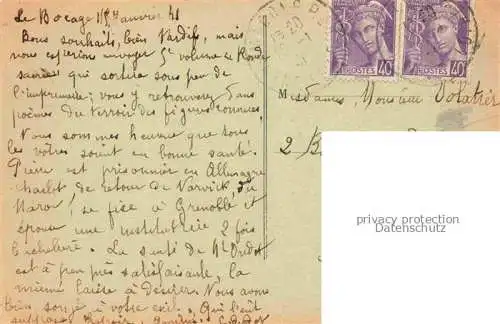 Le Bocage 11 Janvier 41
Bons souhaits, bien tardifs, mais
nous espérions envoyer 5e volume de Rondes
qui sortira sous peu de
l'imprimerie ; vous y retrouverez dans
poèmes du terroir des figures connues.
Nous sommes heureux que tous
les vôtres soient en bonne santé.
Pierre est prisonnier en Allemagne
de retour de du
Maroc, se fixe à Grenoble et
épouse une institutrice 2 fois
bachelière. La santé de
est à peu près satisfaisante, la
mienne laisse à désirer. Nous avons
bien songé à votre exil. Qu'il eût
Mesdames, Monsieur
2
POSTES 40
POSTES 40
privacy protection
Datenschutz